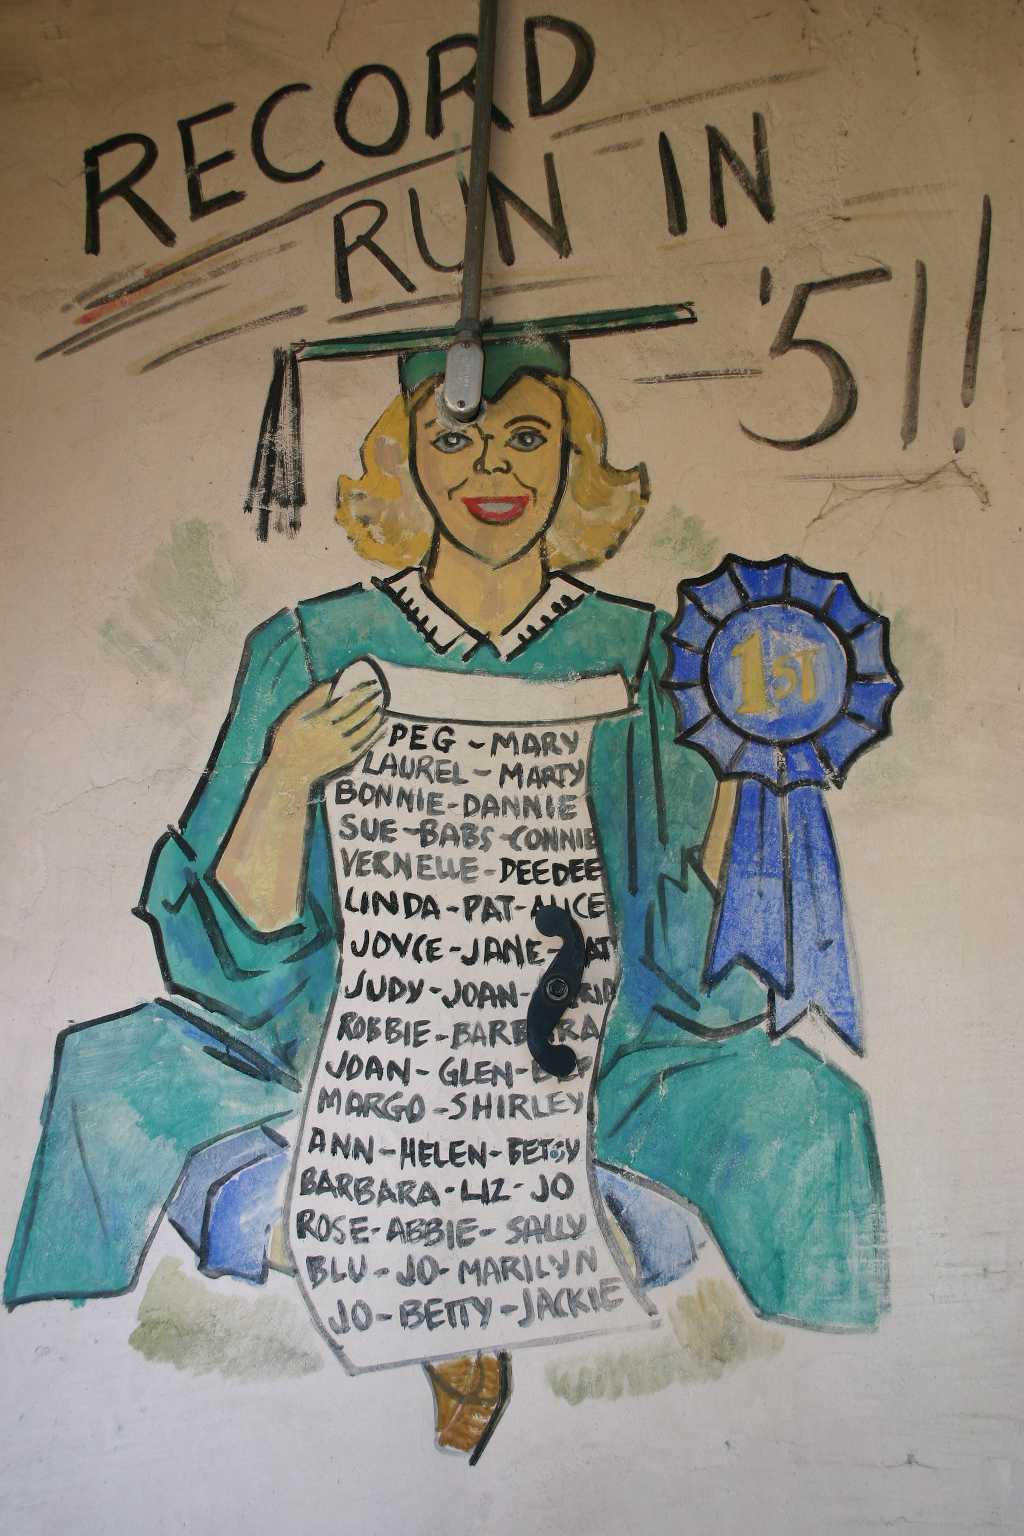 RECORD
RUN IN
'51!
1ST
PEG - MARY
LAUREL - MARTY
BONNIE - DANNIE
SUE - BABS - CONNIE
VERNELLE - DEEDEE
LINDA - PAT - ALICE
JOYCE - JANE -
JUDY - JOAN -
ROBBIE - BARBARA
JOAN - GLEN -
MARGO - SHIRLEY
ANN - HELEN - BETSY
BARBARA - LIZ - JO
ROSE - ABBIE - SALLY
BLU - JO - MARILYN
JO - BETTY - JACKIE